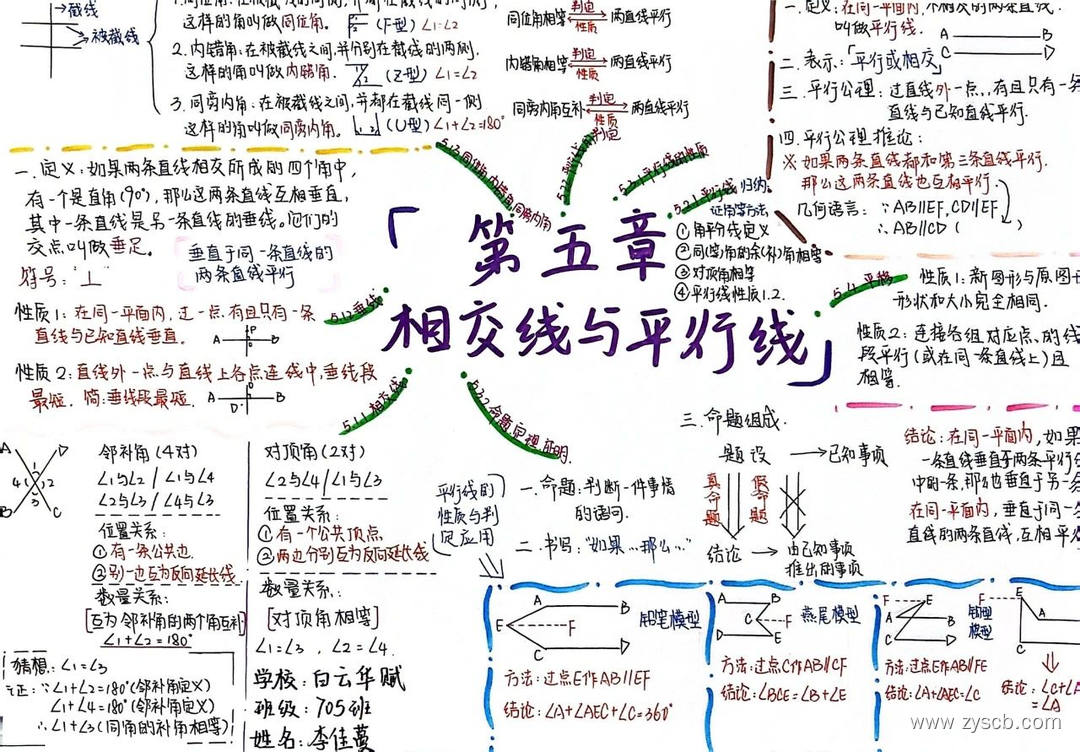 截线
被截线
这样的角叫做同位角. (F型) ∠1=∠2
2.内错角:在被截线之间,并分别在截线的两侧,
这样的角叫做内错角. (Z型) ∠1=∠2
3.同旁内角:在被截线之间,并都在截线同一侧
这样的角叫做同旁内角. (U型) ∠1+∠2=180°
同位角相等 判定 性质 两直线平行
内错角相等 判定 性质 两直线平行
同旁内角互补 判定 性质 两直线平行
一.定义:在同一平面内,不相交的两条直线.
叫做平行线.
A B
C D
二.表示:「平行或相交」
三.平行公理:过直线外一点,有且只有一条
直线与已知直线平行.
四.平行公理推论:
※如果两条直线都和第三条直线平行.
那么这两条直线也互相平行.
几何语言:∵AB∥EF,CD∥EF
∴AB∥CD ( )
一.定义:如果两条直线相交所成的四个角中,
有一个是直角(90°),那么这两条直线互相垂直,
其中一条直线是另一条直线的垂线。它们的
交点叫做垂足.
符号:"⊥"
垂直于同一条直线的
两条直线平行
性质1:在同一平面内,过一点有且只有一条
直线与已知直线垂直.
A P B
性质2:直线外一点与直线上各点连线中,垂线段
最短. 简:垂线段最短.
A B
5.1.3同位角内错角同旁内角
5.2.2平行线的判定
5.2.1平行线
归纳
证角等方法
①角平分线定义
②同(等)角的余(补)角相等
③对顶角相等
④平行线性质1.2.
「第五章
相交线与平行线」
5.1.2垂线
5.1.1相交线
5.3.2命题定理证明
5.4平移
性质1:新图形与原图形
形状和大小完全相同.
性质2:连接各组对应点的线
段平行(或在同一条直线上)且
相等.
A D
4 1 2 3
B C
邻补角(4对)
∠1与∠2/∠1与∠4
∠2与∠3/∠4与∠3
位置关系:
①有一条公共边
②另一边互为反向延长线
数量关系:
[互为邻补角的两个角互补]
∠1+∠2=180°
猜想:∠1=∠3
证:∵∠1+∠2=180°(邻补角定义)
∠1+∠4=180°(邻补角定义)
∴∠1+∠3(同角的补角相等)
对顶角(2对)
∠2与∠4/∠1与∠3
位置关系:
①有一个公共顶点
②两边分别互为反向延长线
数量关系:
[对顶角相等]
∠1=∠3,∠2=∠4.
学校:白云华赋
班级:705班
姓名:李佳蔓
平行线的
性质与判
定应用
一.命题:判断一件事情
的语句.
二.书写:"如果…那么…"
三.命题组成.
题设 → 已知事项
真命题
假命题
结论 → 由已知事项
推出的事项
结论:在同一平面内,如果
一条直线垂直于两条平行线
中的一条,那么也垂直于另一条
在同一平面内,垂直于同一条
直线的两条直线,互相平行
A B
E F
C D
铅笔模型
方法:过点E作AB∥EF
结论:∠A+∠AEC+∠C=360°
A B
C F
D E
燕尾模型
方法:过点C作AB∥CF
结论:∠BCE=∠B+∠E
F E
A B
C D
模型
方法:过点E作AB∥FE
结论:∠A+∠AEC=∠C
F E
A
C
结论:∠C+∠A
=∠A
www.zyscb.com